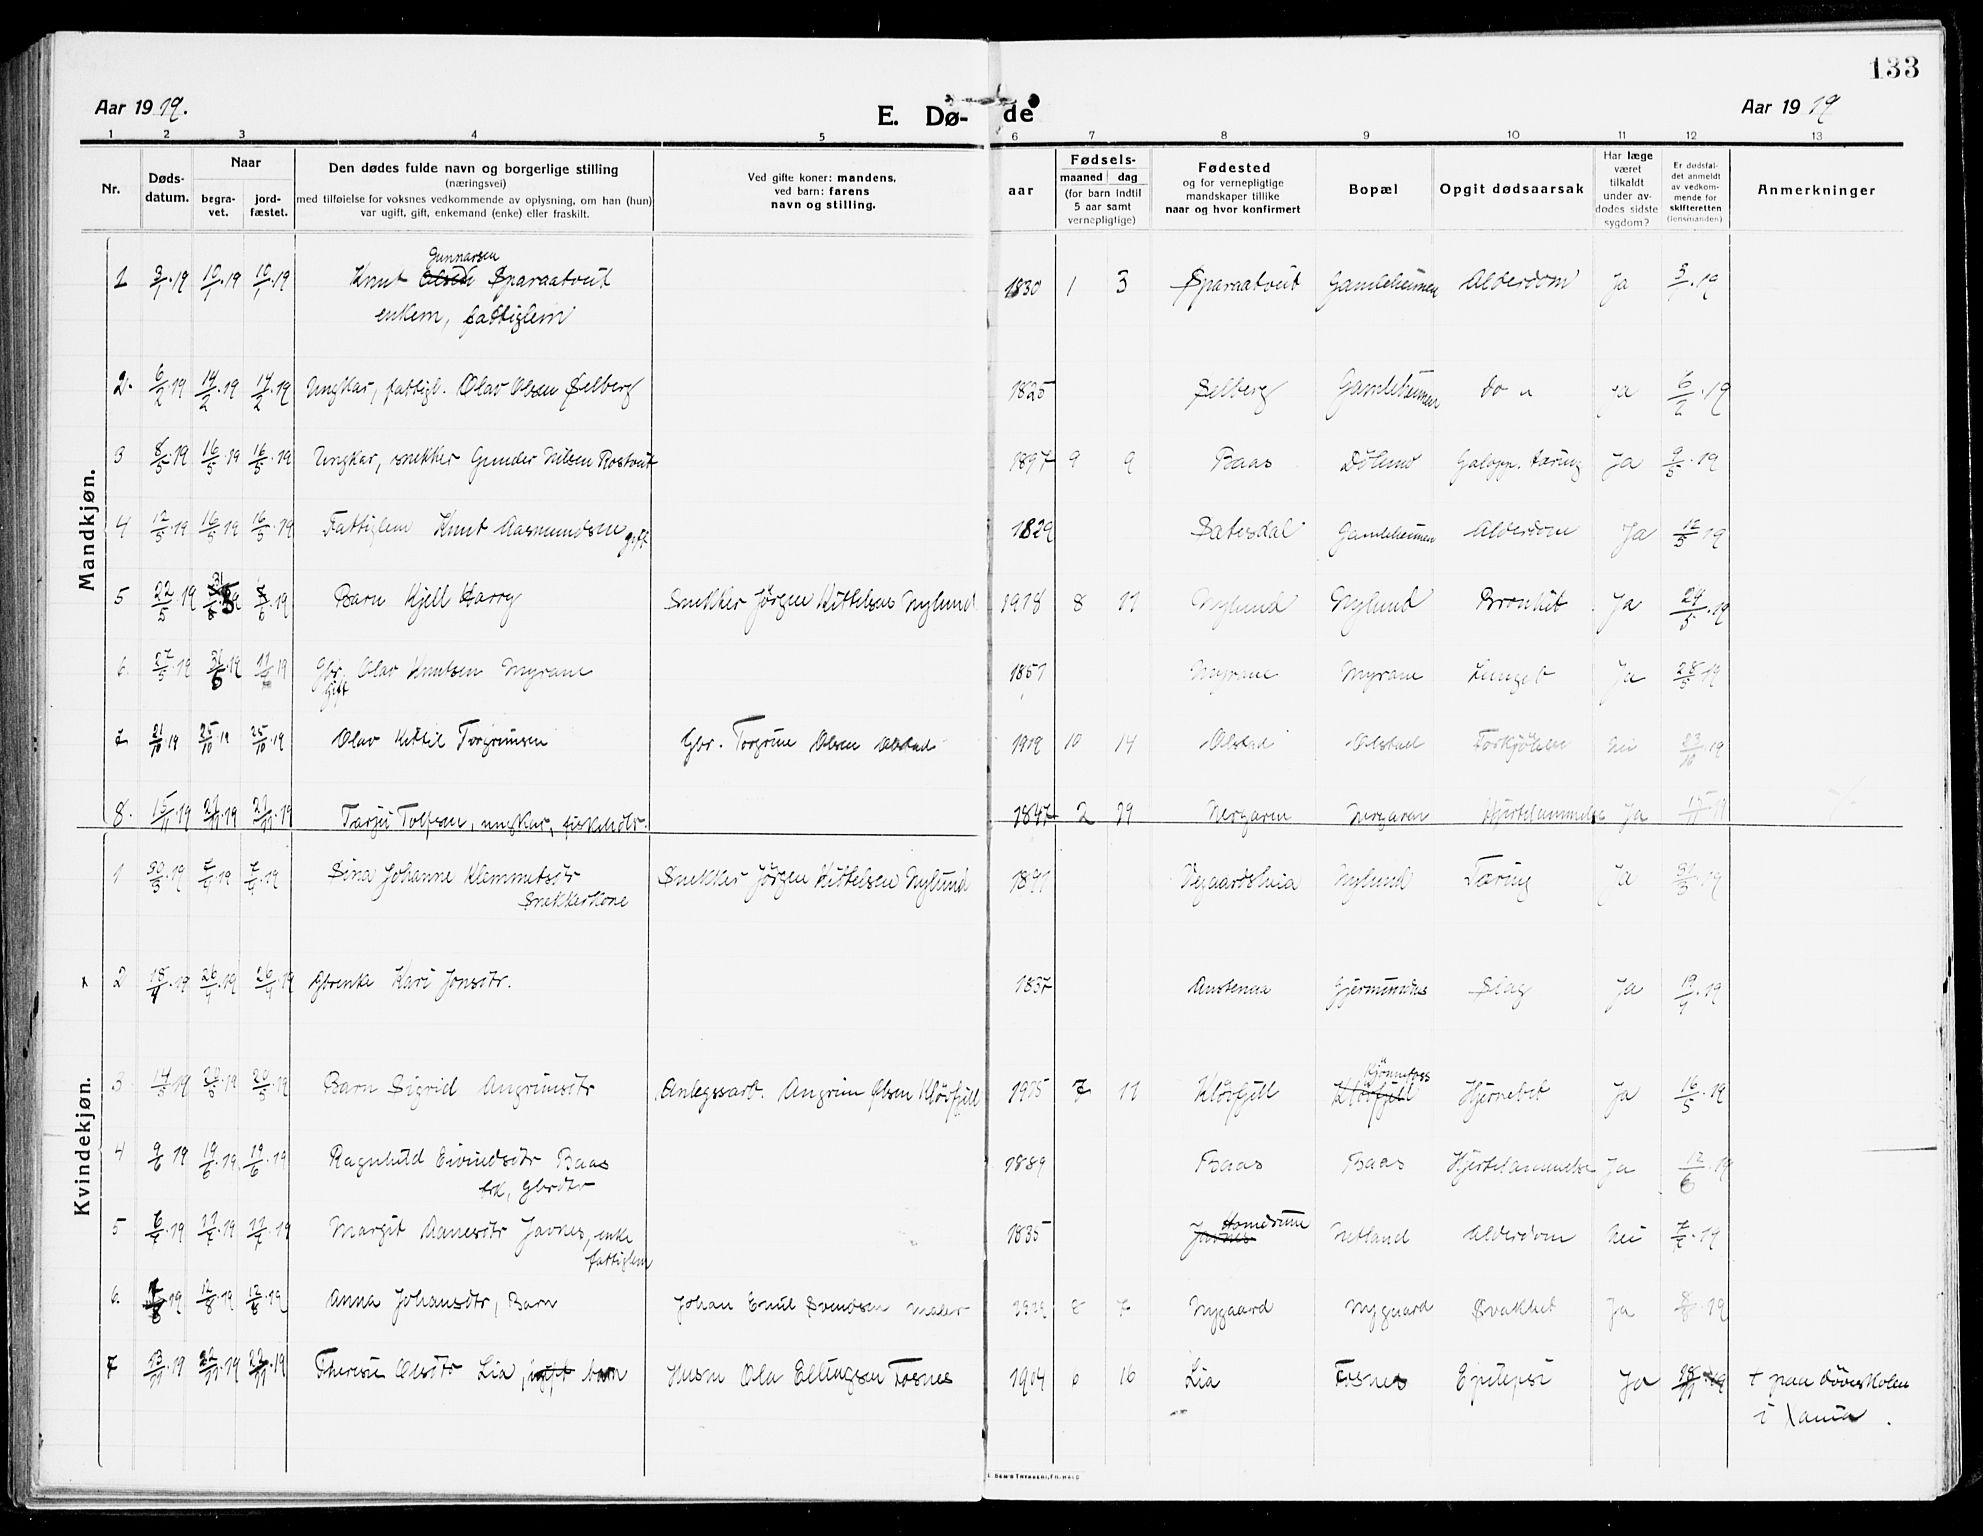 133
Aar 1919.
E. Dø-de
Aar 1919
1 2 3 4 5 6 7 8 9 10 11 12 13
Nr.
Døds-datum.
Naar
begra-vet.
jord-fæstet.
Den dødes fulde navn og borgerlige stilling
(næringsvei)
med tilføielse for voksnes vedkommende av oplysning, om han (hun)
var ugift, gift, enkemand (enke) eller fraskilt.
Ved gifte koner: mandens,
ved barn: farens
navn og stilling.
Fødsels-
aar
maaned dag
(for barn indtil
5 aar samt
vernepligtige)
Fødested
og for vernepligtige
mandskaper tillike
naar og hvor konfirmert
Bopæl
Opgit dødsaarsak
Har læge
været
tilkaldt
under av-
dødes sidste
sygdom?
Er dødsfal-
det anmeldt
av vedkom-
mende for
skifteretten
(lensmanden)
Anmerkninger
Mandkjøn.
Gunnarsen
1 3/1·19 10/1·19 10/1·19 Knut Olsen Sparaatveit 1830 1 3 Sparaatveit Gamleheimen Alderdom Ja 3/1·19
enkem, fattiglem
2. 6/2·19 14/2·19 14/2·19 Ungkar, fattigl. Olav Olsen Selberg 1825 Selberg Gamleheimen do " ja 6/2·19
3 8/5·19 16/5·19 16/5·19 Ungkar, snekker Gunder Nilsen Rostveit 1897 9 9 Baas Dölemo Galopp. tæring Ja 9/5·19
4 12/5·19 16/5·19 16/5·19 Fattiglem Knut Aasmundsen gift 1829 Sætesdal Gamleheimen Alderdom Ja 12/5·19
5 22/5·19 31/5·19 Barn Kjell Harry Snekker Jörgen Kittelsen Nylund 1918 8 11 Nylund Nylund Bronkit Ja 24/5·19
6. 27/5·19 19 19 Gbr. Olav Knutsen Myrane 1857 Myrane Myrane Lunget Ja 28/5·19
Gift
7 21/10·19 25/10·19 25/10·19 Olav Kittil Torgrimsen Gbr. Torgrim Olsen Olstad 1919 10 14 Olstad Olstad Forkjölelse Nei 23/10·19
8. 15/11·19 21/11·19 21/11·19 Tarjei Tolfsen, ungkar, 1847 2 19 Nergaren Nergaren Hjertelammelse Ja 17/11·19
Kvindekjøn.
1 30/3·19 7/4·19 7/4·19 Sina Johanne Klemmetsdtr Snekker Jörgen Kittelsen Nylund 1891 Vegaardsheia Nylund Tæring Ja 31/3·19
Snekkerkone
x 2 18/4·19 26/4·19 26/4·19 Gbrenke Kari Jonsdtr. 1837 Austenaa Gjermundnes Slag Ja 19/4·19
3 14/5·19 20/5·19 20/5·19 Barn Sigrid Angrimsdtr Anlegsarb. Angrim Olsen Klövfjell 1915 7 11 Klövfjell Klövfjell Hjernebet Ja 16/5·19
4 9/6 19 19/6·19 19/6·19 Ragnhild Eivindsdtr Baas 1889 Baas Baas Hjertelammelse Ja 12/6·19
gbrdtr
5 6/7·19 11/7·19 11/7·19 Margit Aanesdtr Javnes, enke 1835 Javnes Homdrum Netland Alderdom Nei 7/7·19
fattiglem
6. 7/8·19 12/8·19 12/8·19 Anna Johansdtr, Barn Johan Emil Svendsen maler 1919 8 7 Nygaard Nygaard Svakhet Ja 8/8·19
7 13/11·19 22/11·19 22/11·19 Therese Olsdtr Lia, ugift barn Husm Ola Ellingsen Fosnes 1904 6 16 Lia Fosnes Epilepsi Ja 18/11·19 + paa Döveskolen
i Xania.